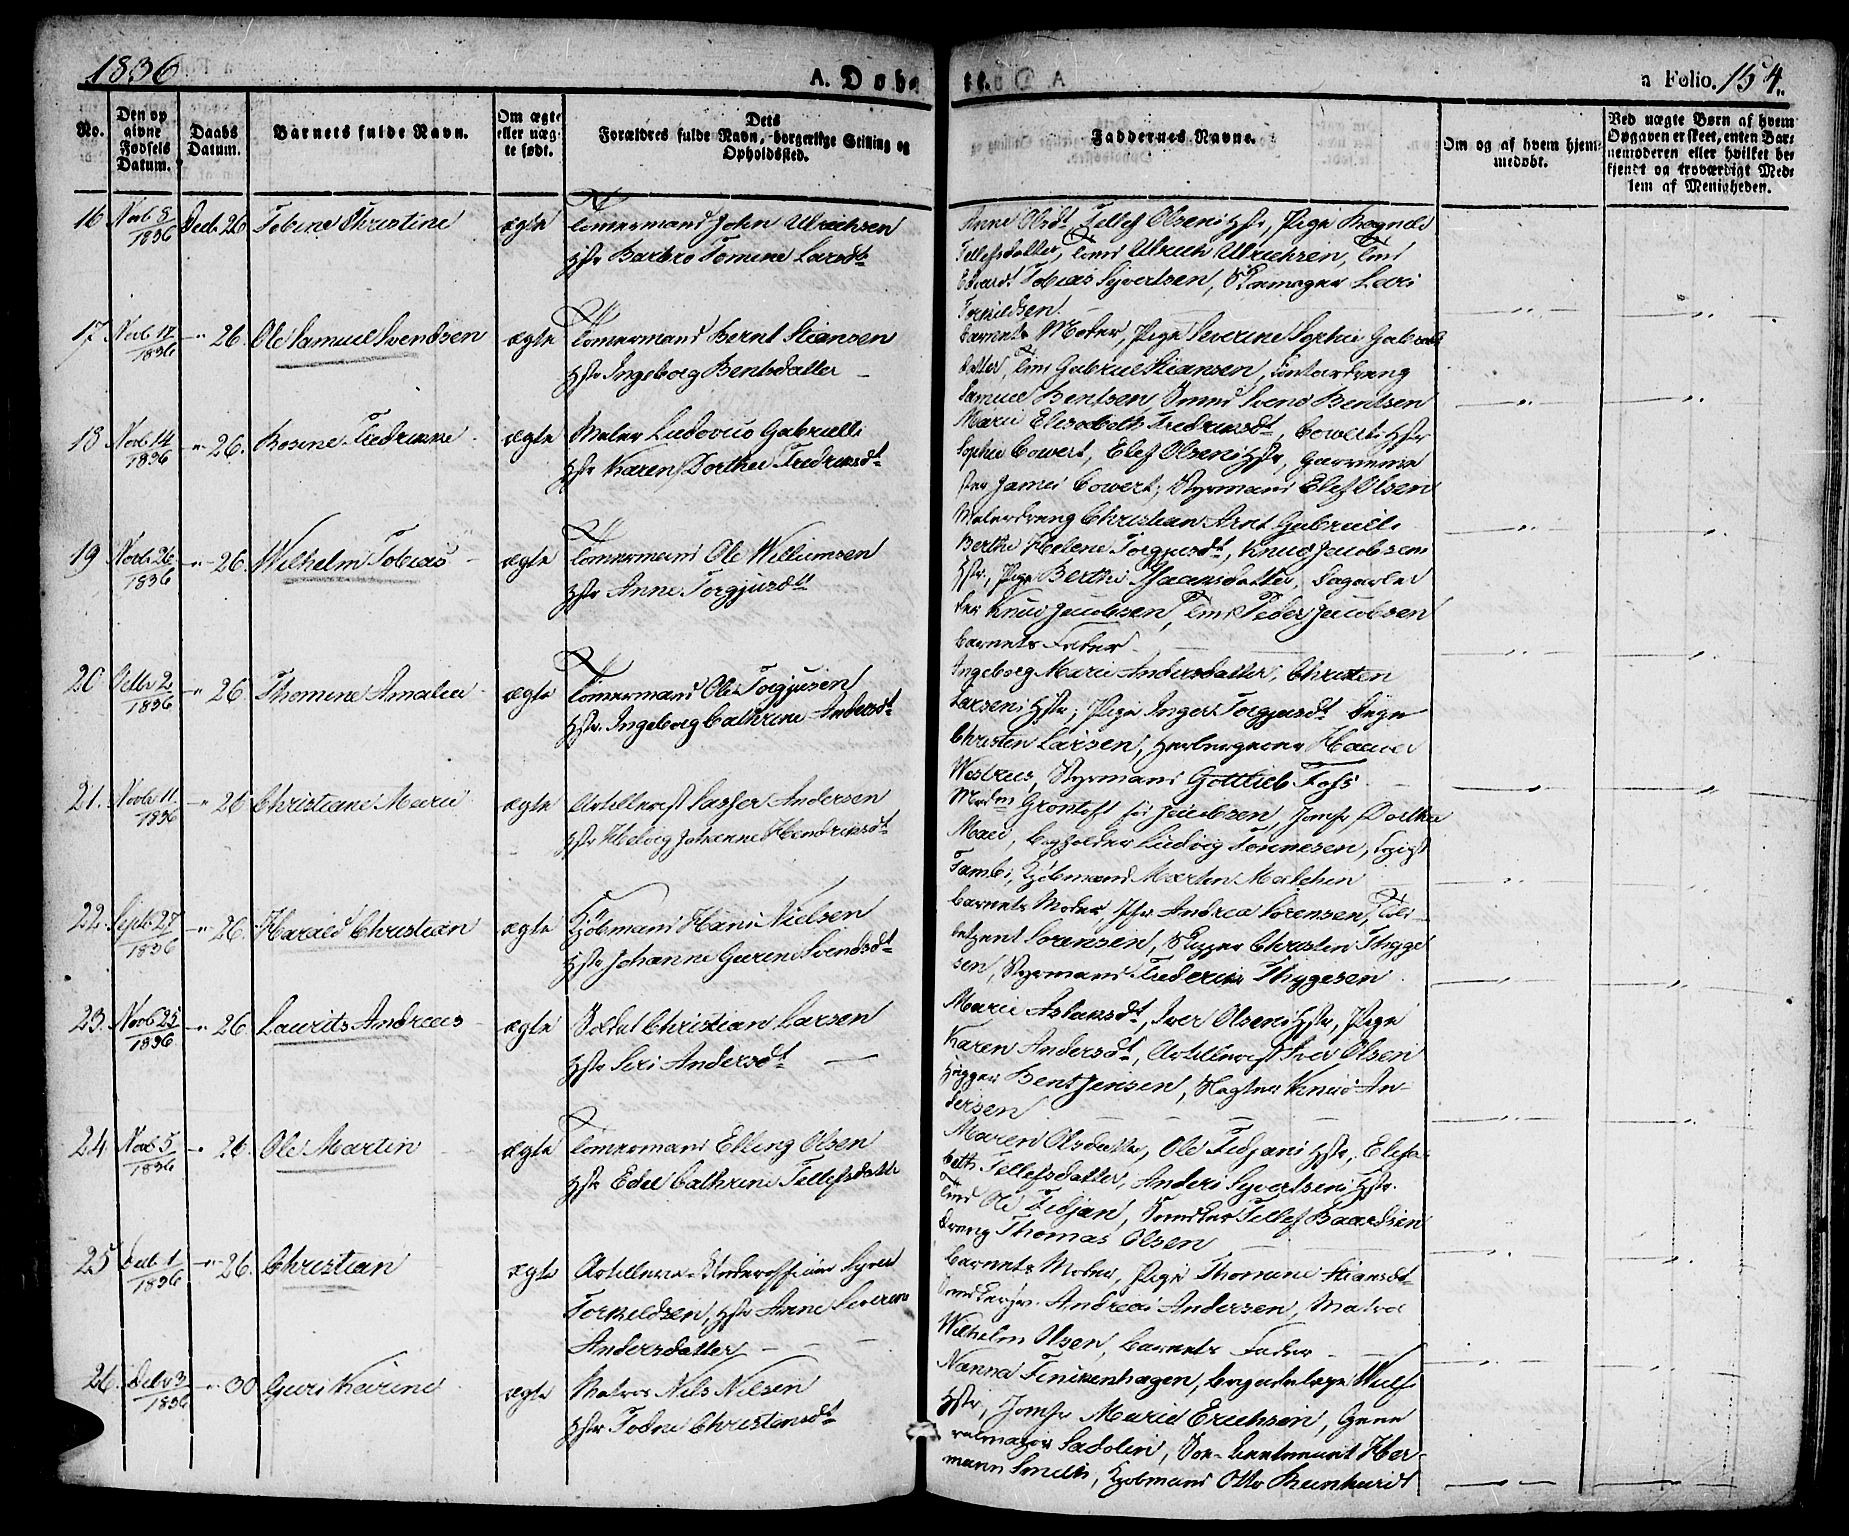 1836
A. Døbte.
a Folio. 154.
No.
Den op
givne
Fødsels
Datum.
Daabs
Datum.
Barnets fulde Navn.
Om ægte
eller uæg-
te født.
Dets
Forældres fulde Navn, borgerlige Stilling og
Opholdssted.
Faddernes Navne.
Om og af hvem hjem-
medøbt.
Ved uægte Børn af hvem
Opgaven er skeet, enten Bar-
nemoderen eller hvilket be-
kjendt og troværdigt Med-
lem af Menigheden.
16 Novb 8/1836 Decb. 26 Tobine Christine ægte Tömermand John Ulrichsen
Hstr Barbro Tomine Larsdt
Anne Olsdt, Tellef Olsens Hstr, Pige Ragnild
Tellefsdatter, Tmd Ulrich Ulrichsen, Tmd
Tobias Syvertsen, Skomager Lars
Torkildsen
17 Novb 17/1836 - 26. Ole Samuel Svendsen ægte Tömermand Bernt Stiansen
Hstr Ingeborg Bentsdatter -
Barnets Moder, Pige Severine Sophie Gabriels
datter, Tmd Gabriel Stiansen, Contordreng
Samuel Bentsen Smed Svend Bentsen
18 Novb 14/1836 - 26. Rosine Fredrikke ægte Maler Ludovico Gabrielli
Hstr Karen Dorthea Fredriksdt
Marie Elisabeth Fredriksdt, Cowerts Hstr
Sophie Cowert, Elef Olsens Hstr, Garverme
ster James Cowert, Styrmand Elef Olsen
Malerdreng Christian Arnt Gabrielli
19 Novb 26/1836 - 26. Wilhelm Tobias - ægte Tömermand Ole Williamsen
Hstr Anne Torgjusdt
Berthe Helene Torgjusdt, Knud Jacobsens
Hstr, Pige Berthe Isaacsdatter, Dagarbei
der Knud Jacobsen, Tmd Peder Jacobsen
Barnets Fader -
20 Octbr 2/1836 - 26. Thomine Amalia ægte Tömermand Ole Torgjusen
Hstr. Ingeborg Cathrine Andersdt
Ingeborg Marie Andersdatter, Christen
Larsens Hstr; Pige Inger Torgjusdt
Christen Larsen,
Styrmand Gottlieb Foss
21. Novb 11/1836 - 26 Christiane Marie ægte Artillerist Andersen
Hstr Johanne Hendriksdt
Madm Grontoft Jacobsen, Jomfr Dorthea
Bogholder Ludvig Tönnesen,
Kjöbmand Morten
22. Septb 27/1836 - 26. Harald Christian ægte Kjöbmand Hans Nielsen
Hstr Johanne Gurine Svendsdt
Barnets Moder, Jfr Andrea Sörensen,
Sörensen, Skipper Christen Thyge
sen, Styrmand Frederik Thygesen
23. Novb 25/1836 - 26. Laurits Andreas - ægte Soldat Christian Larsen
Hstr Siri Andersdt
Marie Aslaksdt, Iver Olsens Hstr, Pige
Karen Andersdt, Artillerist Iver Olsen
Bent Jensen, Slagter Knud An-
dersen
24. Novb 5/1836 - 26. Ole Martin ægte Tömermand Elling Olsen
Hstr Edel Cathrine Tellefsdatter
Maren Olsdatter, Ole Fidjans Hstr, Elisa
beth Tellefsdatter, Anders Syvertsens Hstr.
Tmd Ole Fidjan, Snedker Tellef Baardsen
dreng Thomas Olsen
25 Decb 1/1836 - 26. Christian ægte Artillerie-Underofficier
Torkildsen, Hstr Anne Severine
Andersdatter
Barnets Moder, Pige Thomine Stiansdt
Snedkersv. Andreas Andersen, Matros
Wilhelm Olsen, Barnets Fader
26. Decb 3/1836 - 30 Guri Karine ægte Matros Nils Nilsen
Hstr Tobine Christensdt
Nanna Finckenhagen, Brigadelæge Wulfs
Hstr, Jomfr Marie Erichsen, Gene
ralmajor Sadolin, Sec-Lieutenant Her-
mann Smith, Kjöbmand Otto Reinhardt